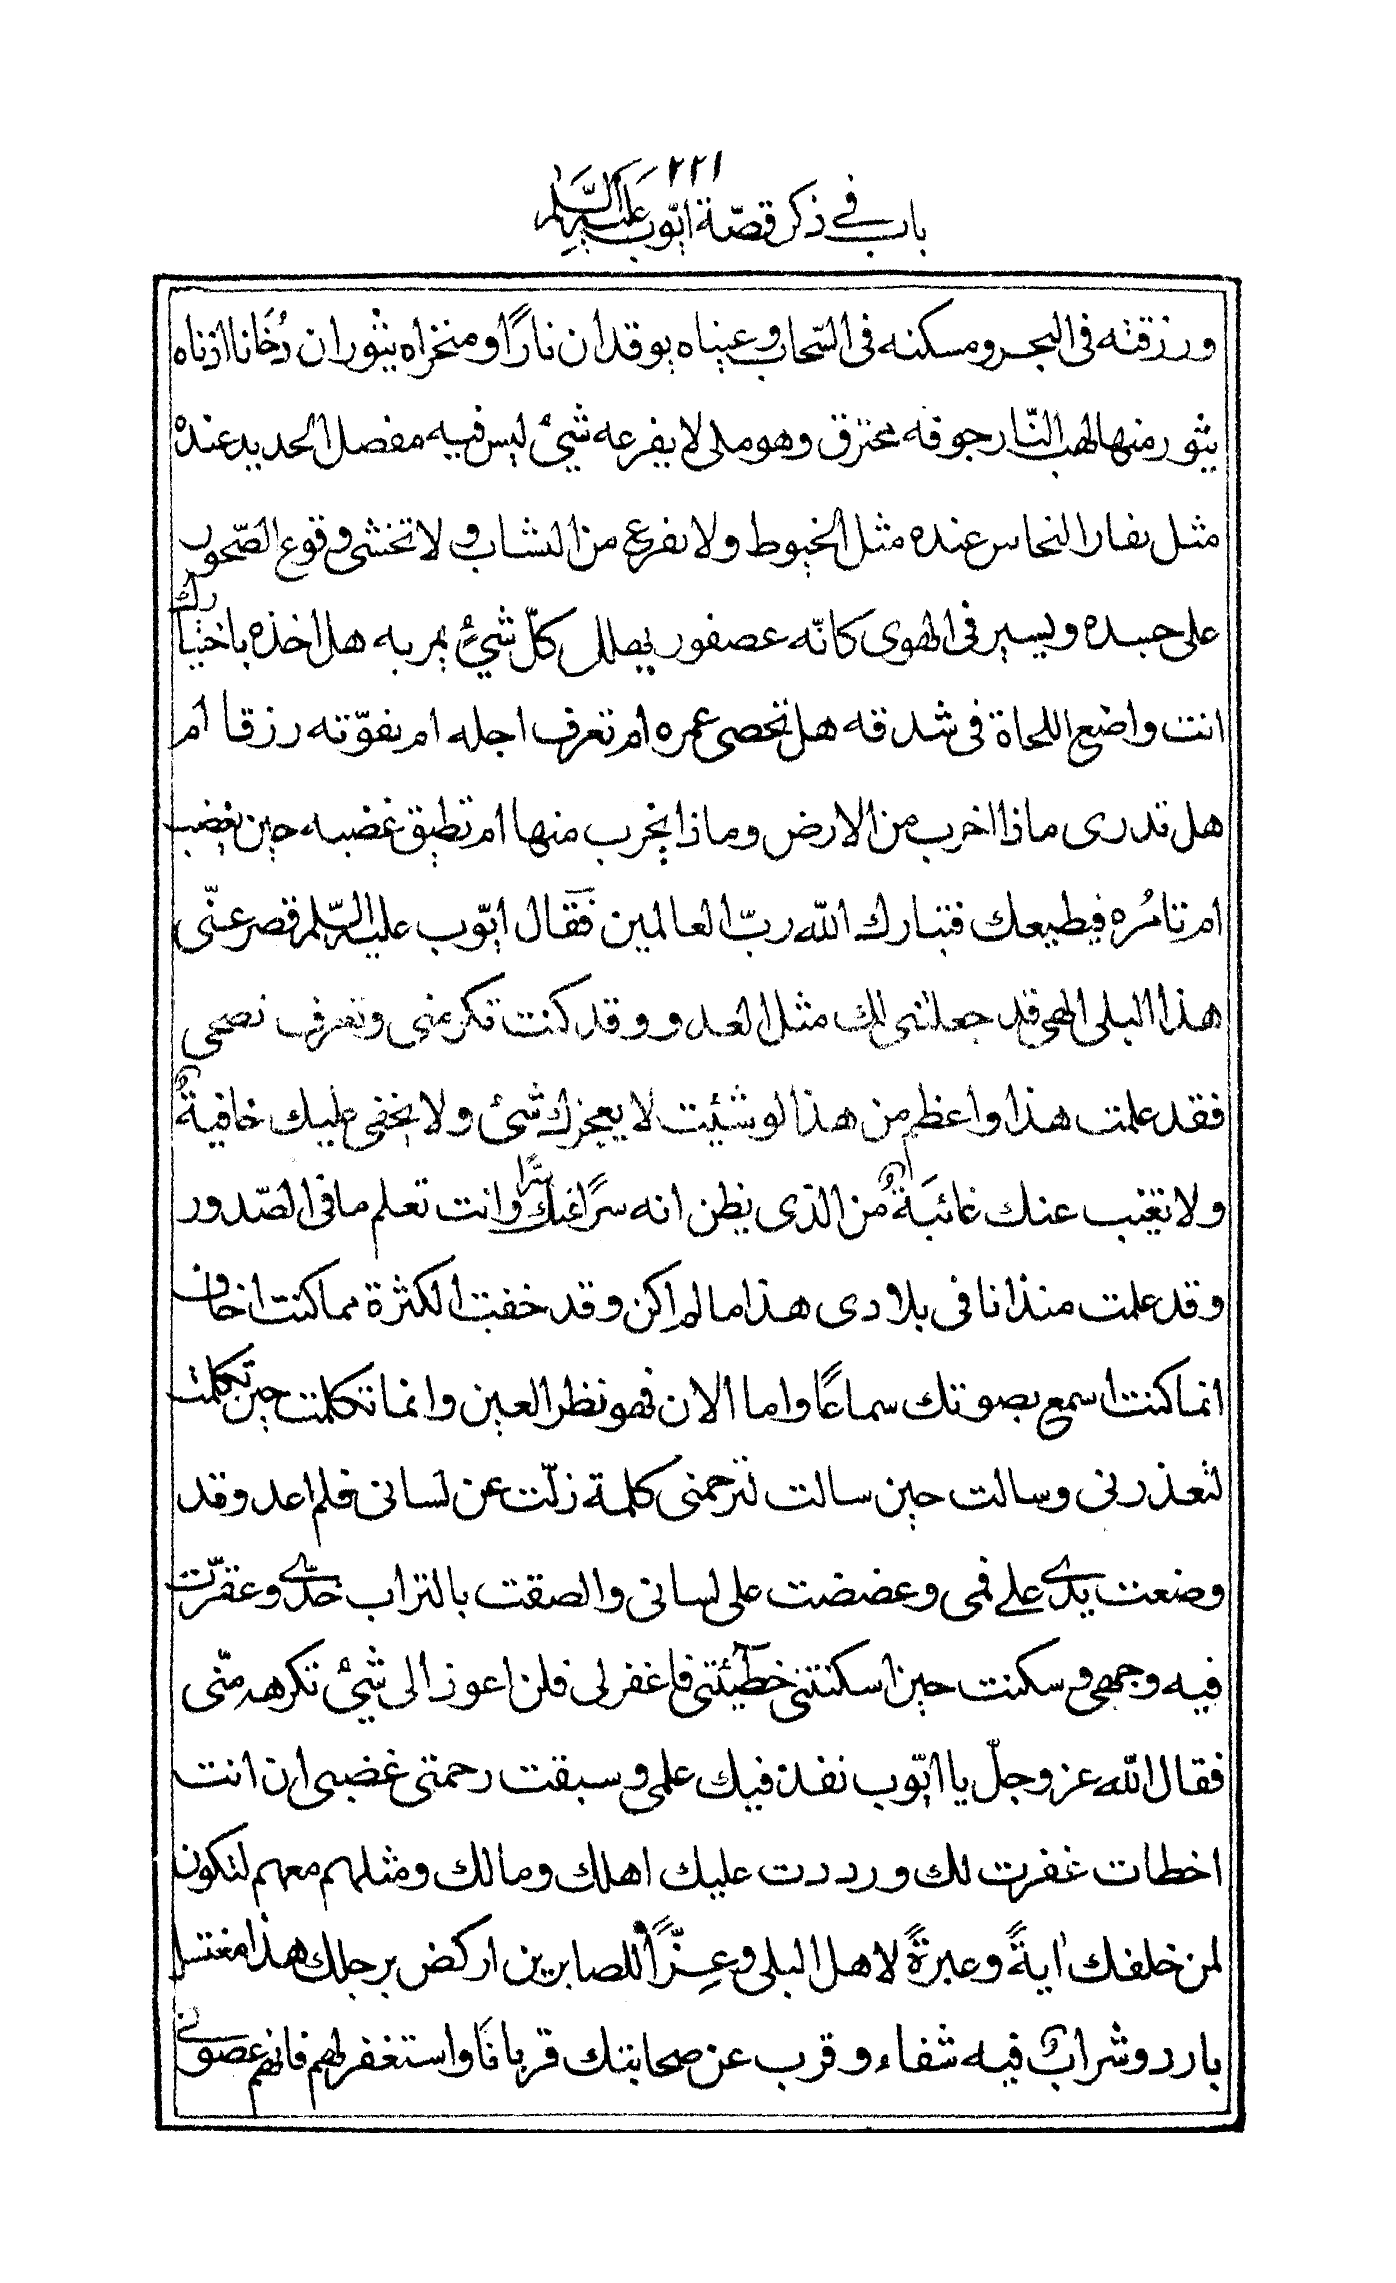 ٢٢١
باب في ذكر قصّة ايّوب عليه السّلم
ورزقته في البحر ومسكنه في السّحاب وعيناه يوقدان نارًا ومنخراه يثوران دُخَانا اذناه
يثور منها لهب النّار جوفه محترق وهو ملى لا يفزعه شيئ ليس فيه مفصل الحديد عنده
مثل نفار النحاس عنده مثل الخيوط ولا يفزع من النشاب ولا تخشى وقوع الصّخور
على جسده ويسير في الهوى كانّه عصفور يصلل كلّ شيئ يمر به هل اخذه باختيارك
انت واضع اللحاة في شدقه هل تحصى عمره ام تعرف اجله ام نفوّته رزقا ام
هل تدرى ماذا اخرب من الارض وماذا يخرب منها ام تطيق غضبه حين يغضب
ام تامُره فيطيعك فتبارك الله ربّ العالمين فَقال ايّوب عليه السّلم قصر عنّى
هذا البلى الهى قد جعلتنى لك مثل العدو وقد كنت تكرمنى وتعرف نصحى
فقد علمت هذا واعظم من هذا لو شئت لا يعجزك شئ ولا يخفى عليك خافيةٌ
ولا تغيب عنك غائبَةٌ من الذى يظن انه سرًا عنك سرًّا وانت تعلم ما في الصّدور
وقد علمت منذ انا في بلاودى هذا ما لم اكن وقد خفت الكثرة مما كنت اخاف
انما كنت اسمع بصوتك سماعًا واما الان فهو نظر العين وانما تكلمت حين تكلمت
لتعذرنى وسالت حين سالت لترحمنى كلمة زلّت عن لسانى فلم اعد وقد
وضعت يدى على فمى وعضضت على لسانى والصقت بالتراب خدّى وعفرّت
فيه وجهى وسكنت حين اسكنتنى خطيئتى فاغفر لى فلن اعوز الى شيئ تكرهه منّى
فقال الله عز وجلّ يا ايّوب نفذ فيك علمى وسبقت رحمتى غضبى ان انت
اخطات غفرت لك ورددت عليك اهلك ومالك ومثلهم معهم لتكون
لمن خلفك آيةً وعبرةً لاهل البلى وعِزّاً للصابرين اركض برجلك هذا مغتسل
بارد وشرابٌ فيه شفاء وقرب عن صحابتك قربانًا واستغفر لهم فانهم عصونى